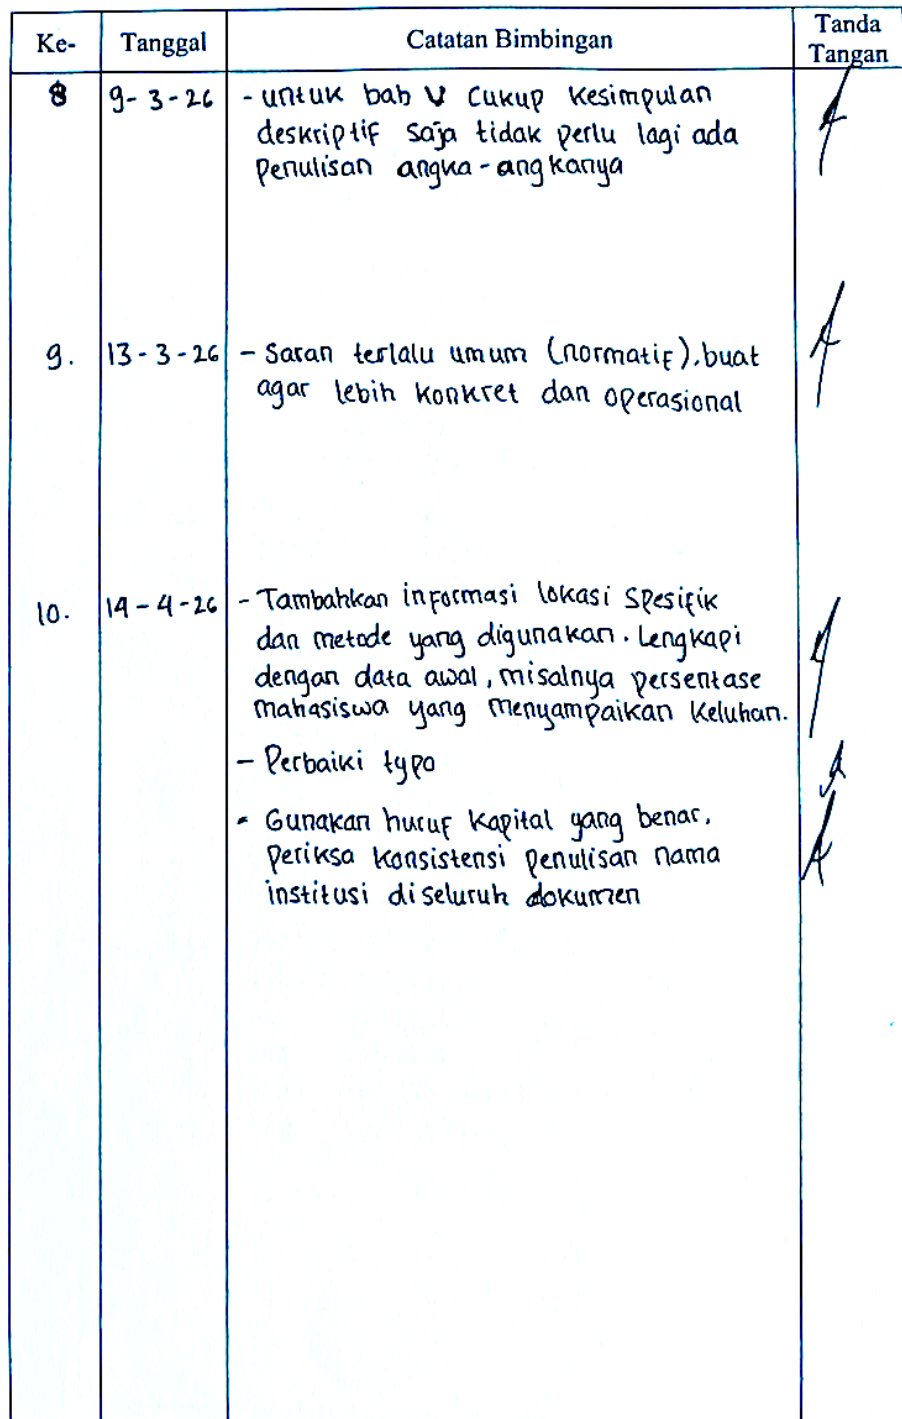 Ke- Tanggal Catatan Bimbingan Tanda Tangan
8 9-3-26 - untuk bab V cukup kesimpulan
deskriptif saja tidak perlu lagi ada
penulisan angka-angkanya
9. 13-3-26 - Saran terlalu umum (normatif), buat
agar lebih konkret dan operasional
10. 14-4-26 - Tambahkan informasi lokasi spesifik
dan metode yang digunakan. Lengkapi
dengan data awal, misalnya persentase
mahasiswa yang menyampaikan keluhan.
- Perbaiki typo
- Gunakan huruf kapital yang benar.
Periksa konsistensi penulisan nama
institusi diseluruh dokumen